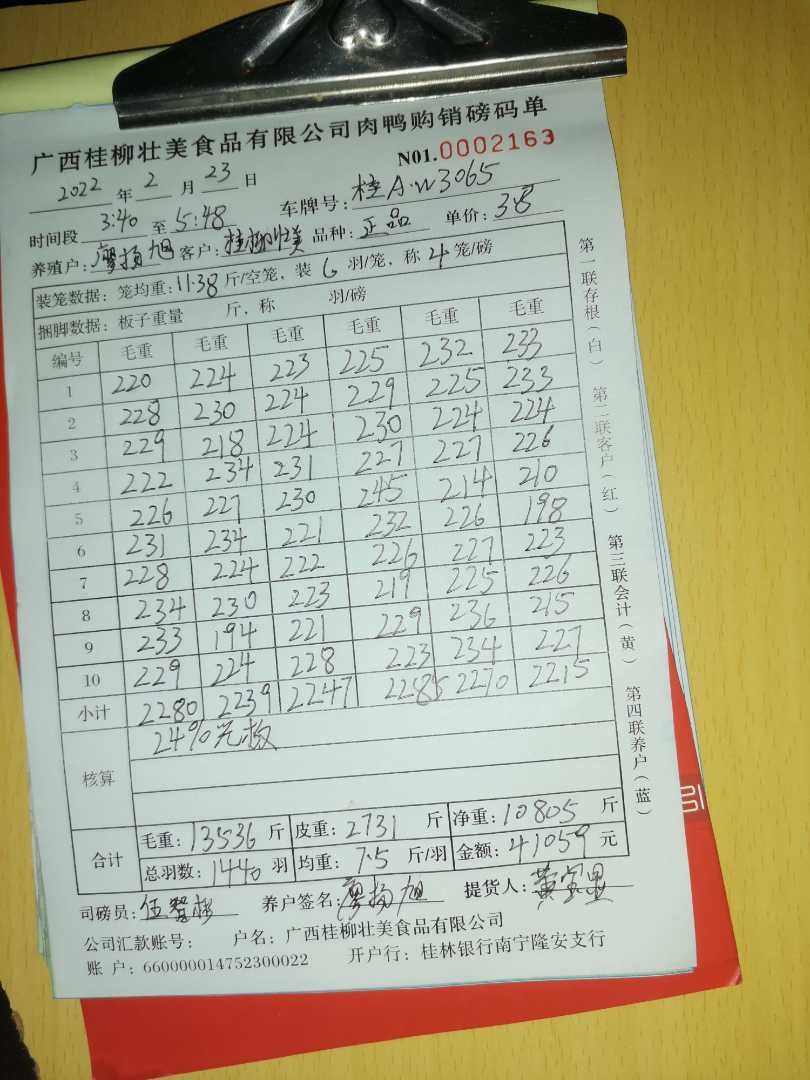 广西桂柳壮美食品有限公司肉鸭购销磅码单
N01.0002163
2022 年 2 月 23 日
时间段 3:40 至 5:48 车牌号: 桂A·W3065
养殖户: 廖扬旭 客户: 桂柳壮美 品种: 正品 单价: 3.8
装笼数据: 笼均重: 11.38 斤/空笼, 装 6 羽/笼, 称 4 笼/磅
捆脚数据: 板子重量 斤, 称 羽/磅
编号 毛重 毛重 毛重 毛重 毛重 毛重
1 220 224 223 225 232 233
2 228 230 224 229 225 233
3 229 218 224 230 224 224
4 222 234 231 227 227 226
5 226 227 230 245 214 210
6 231 234 221 232 226 198
7 228 224 222 226 227 223
8 234 230 223 219 225 226
9 233 194 221 229 236 215
10 229 224 228 223 234 227
小计 2280 2239 2247 2285 2270 2215
核算 24%光板
合计 毛重: 13536 斤 皮重: 2731 斤 净重: 10805 斤
总羽数: 1440 羽 均重: 7.5 斤/羽 金额: 41059 元
司磅员: 养户签名: 廖扬旭 提货人:
公司汇款账号: 户名: 广西桂柳壮美食品有限公司
账 户: 660000014752300022 开户行: 桂林银行南宁隆安支行
第一联存根(白) 第二联客户(红) 第三联会计(黄) 第四联养户(蓝)